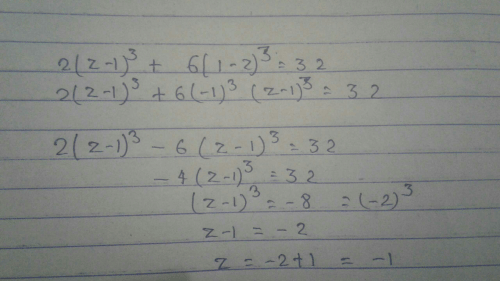 2(z-1)³ + 6(1-z)³ = 32
2(z-1)³ + 6(-1)³ (z-1)³ = 32
2(z-1)³ - 6(z-1)³ = 32
-4(z-1)³ = 32
(z-1)³ = -8 = (-2)³
z-1 = -2
z = -2+1 = -1